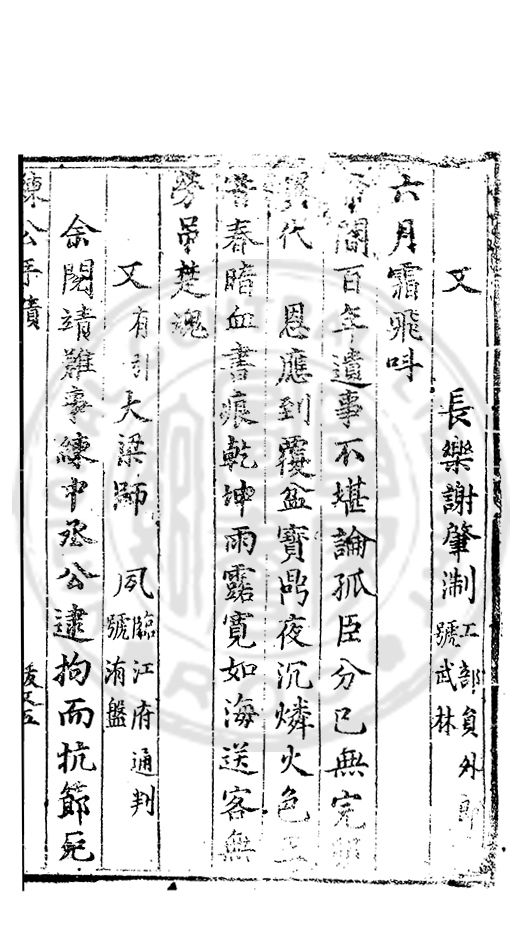 又　長樂謝肇淛 工部員外郎 號武林
六月霜飛叫
閽百年遺事不堪論孤臣分已無完
異代　恩應到覆盆寶鼎夜沉燐火色
春暗血書痕乾坤雨露寬如海送客無
勞吊楚魂
又 有引 大梁師　夙 臨江府通判 號洧盤
余閱靖難事練中丞公逮拘而抗節死
練公手蹟